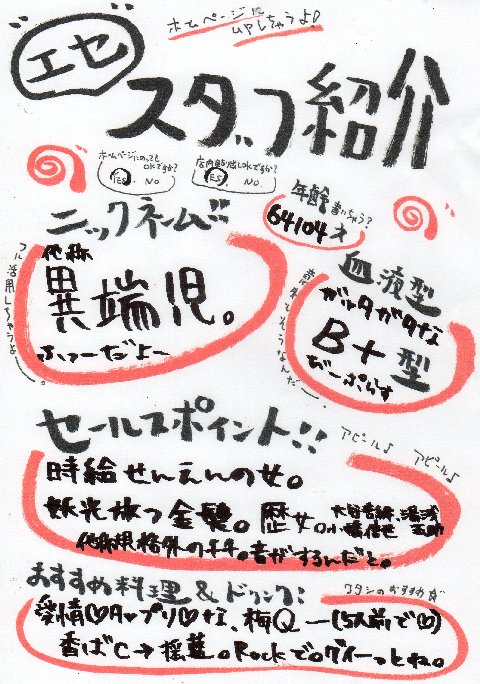 ホームページに
UPしちゃうよ!
エセ
スタッフ紹介
ホームページにのっても
OKですか?
YES. NO
店内貼り出しOKですか?
YES. NO
ニックネーム!!
年齢書いちゃう?
64104才
他称
異端児。
ふつーだよー
フル活用しちゃうよ〜。
血液型
ガッタガタな
B+型
びーぷらす
セールスポイント!!
アピール♪ アピール♪
時給せんえんの女。
妖光放つ金髪。歴女。
他称規格外の千千。音がするんだと。
おすすめ料理&ドリンク:
ワタシのおすすめ☆
愛情♡Aップリ♡な、梅Q―(5人前で♡)
香ばC→
Rockで。グイーっとね。